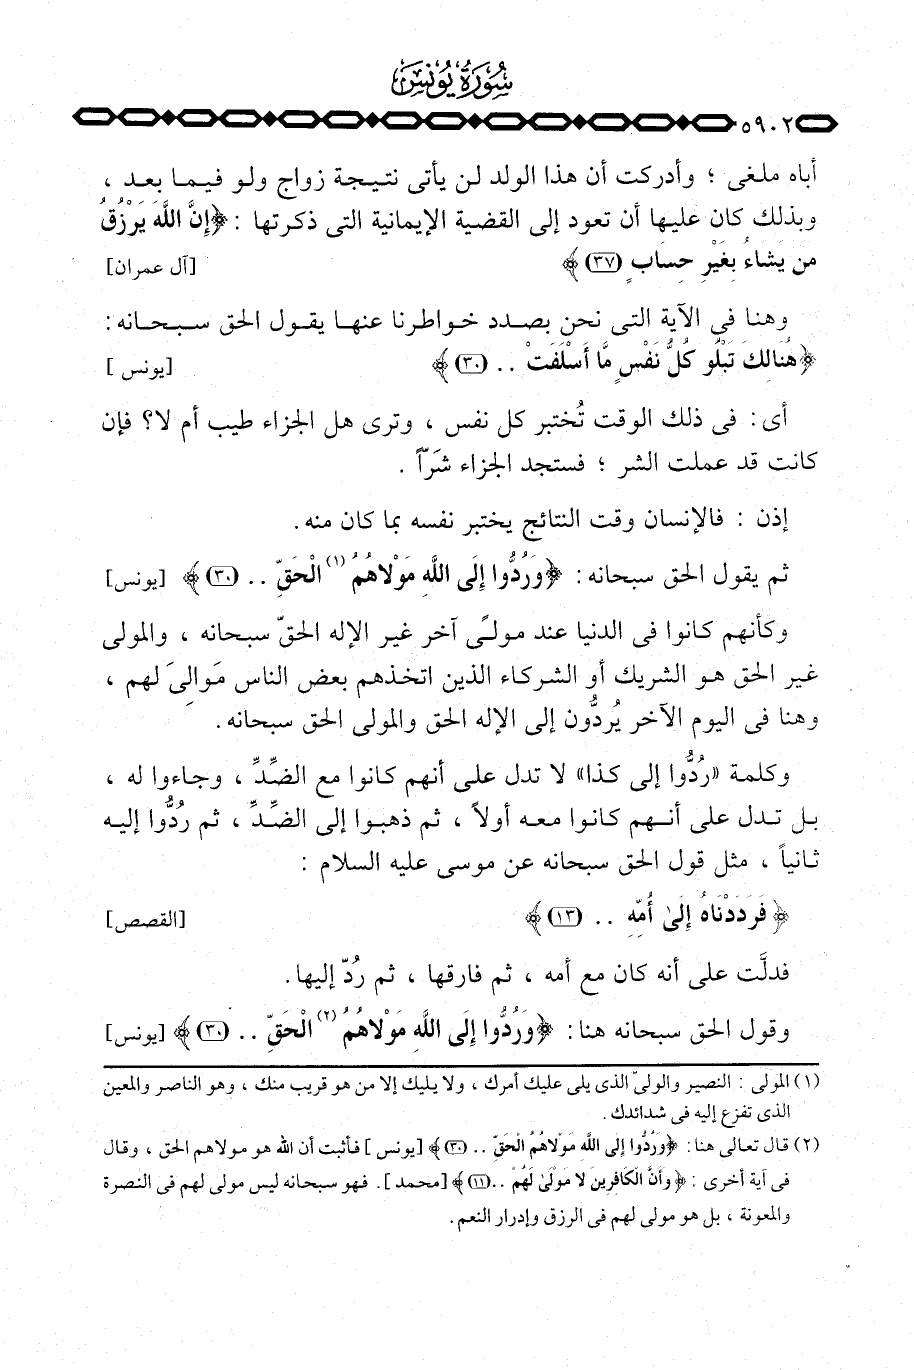 سُورَةُ يُونُسَ
٥٩٠٢
أباه ملغى ؛ وأدركت أن هذا الولد لن يأتى نتيجة زواج ولو فيما بعد ،
وبذلك كان عليها أن تعود إلى القضية الإيمانية التى ذكرتها : ﴿إِنَّ اللَّهَ يَرْزُقُ
مَن يَشَاءُ بِغَيْرِ حِسَابٍ (٣٧)﴾ [آل عمران]
وهنا فى الآية التى نحن بصدد خواطرنا عنها يقول الحق سبحانه:
﴿هُنَالِكَ تَبْلُو كُلُّ نَفْسٍ مَّا أَسْلَفَتْ .. (٣٠)﴾ [يونس]
أى : فى ذلك الوقت تُختبر كل نفس ، وترى هل الجزاء طيب أم لا؟ فإن
كانت قد عملت الشر ؛ فستجد الجزاء شرّاً .
إذن : فالإنسان وقت النتائج يختبر نفسه بما كان منه.
ثم يقول الحق سبحانه: ﴿وَرُدُّوا إِلَى اللَّهِ مَوْلاهُمُ (١) الْحَقِّ .. (٣٠)﴾ [يونس]
وكأنهم كانوا فى الدنيا عند مولًى آخر غير الإله الحقّ سبحانه ، والمولى
غير الحق هو الشريك أو الشركاء الذين اتخذهم بعض الناس مَوالِىَ لهم ،
وهنا فى اليوم الآخر يُردُّون إلى الإله الحق والمولى الحق سبحانه.
وكلمة «رُدُّوا إلى كذا» لا تدل على أنهم كانوا مع الضِّدِّ ، وجاءوا له ،
بل تدل على أنهم كانوا معه أولاً ، ثم ذهبوا إلى الضِّدِّ ، ثم رُدُّوا إليه
ثانياً ، مثل قول الحق سبحانه عن موسى عليه السلام :
﴿فَرَدَدْنَاهُ إِلَىٰ أُمِّهِ .. (١٣)﴾ [القصص]
فدلَّت على أنه كان مع أمه ، ثم فارقها ، ثم رُدّ إليها.
وقول الحق سبحانه هنا: ﴿وَرُدُّوا إِلَى اللَّهِ مَوْلاهُمُ (٢) الْحَقِّ .. (٣٠)﴾ [يونس]
(١) المولى : النصير والولىّ الذى يلى عليك أمرك ، ولا يليك إلا من هو قريب منك ، وهو الناصر والمعين
الذى تفزع إليه فى شدائدك.
(٢) قال تعالى هنا: ﴿وَرُدُّوا إِلَى اللَّهِ مَوْلاهُمُ الْحَقِّ .. (٣٠)﴾ [يونس] فأثبت أن الله هو مولاهم الحق ، وقال
فى آية أخرى : ﴿وَأَنَّ الْكَافِرِينَ لا مَوْلَىٰ لَهُمْ ..(١١)﴾ [محمد]. فهو سبحانه ليس مولى لهم فى النصرة
والمعونة ، بل هو مولى لهم فى الرزق وإدرار النعم.